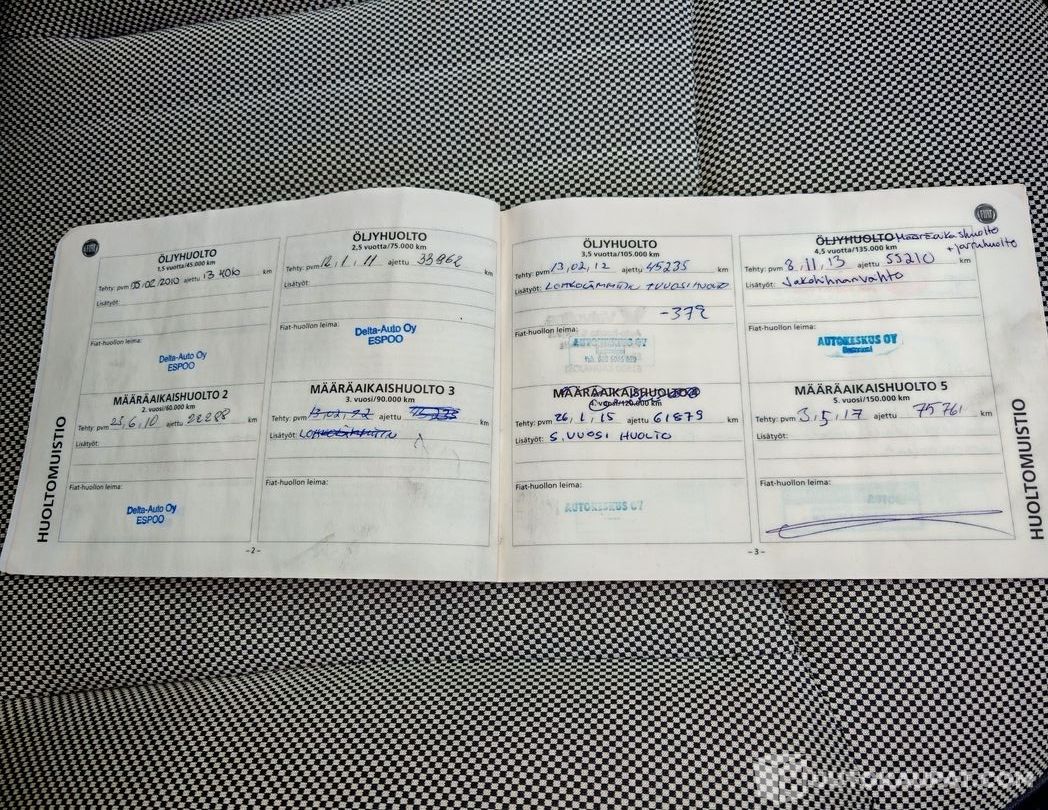 HUOLTOMUISTIO
FIAT
ÖLJYHUOLTO
1,5 vuotta/45.000 km
Tehty: pvm 05/02/2010 ajettu 13406 km
Lisätyöt:
Fiat-huollon leima:
Delta-Auto Oy
ESPOO
ÖLJYHUOLTO
2,5 vuotta/75.000 km
Tehty: pvm 12,1,11 ajettu 33962 km
Lisätyöt:
Fiat-huollon leima:
Delta-Auto Oy
ESPOO
MÄÄRÄAIKAISHUOLTO 2
2. vuosi/60.000 km
Tehty: pvm 25,6,10 ajettu 22288 km
Lisätyöt:
Fiat-huollon leima:
Delta-Auto Oy
ESPOO
MÄÄRÄAIKAISHUOLTO 3
3. vuosi/90.000 km
Tehty: pvm 13,02,22 ajettu km
Lisätyöt:
Fiat-huollon leima:
-2-
FIAT
ÖLJYHUOLTO
3,5 vuotta/105.000 km
Tehty: pvm 13,02,12 ajettu 45235 km
Lisätyöt: LOHKOLÄMMITIN + VUOSIHUOLTO
-379
Fiat-huollon leima:
ÖLJYHUOLTO Määräaikaishuolto
4,5 vuotta/135.000 km + jarruhuolto
Tehty: pvm 8,11,13 ajettu 55210 km
Lisätyöt: Jakohihnanvaihto
Fiat-huollon leima:
AUTOKESKUS OY
MÄÄRÄAIKAISHUOLTO
4. vuosi/120.000 km
Tehty: pvm 26,1,15 ajettu 61879 km
Lisätyöt: 5.VUOSI HUOLTO
Fiat-huollon leima:
AUTOKESKUS OY
MÄÄRÄAIKAISHUOLTO 5
5. vuosi/150.000 km
Tehty: pvm 3,5,17 ajettu 75761 km
Lisätyöt:
Fiat-huollon leima:
-3-
HUOLTOMUISTIO